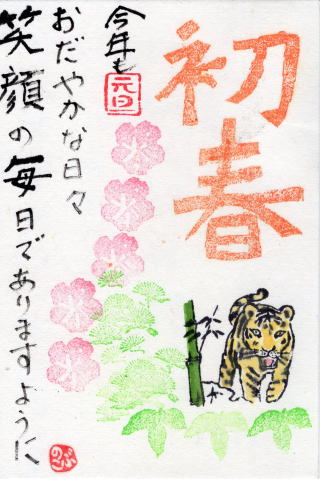 初春
今年も
元旦
おだやかな日々
笑顔の毎日でありますように
のぶこ